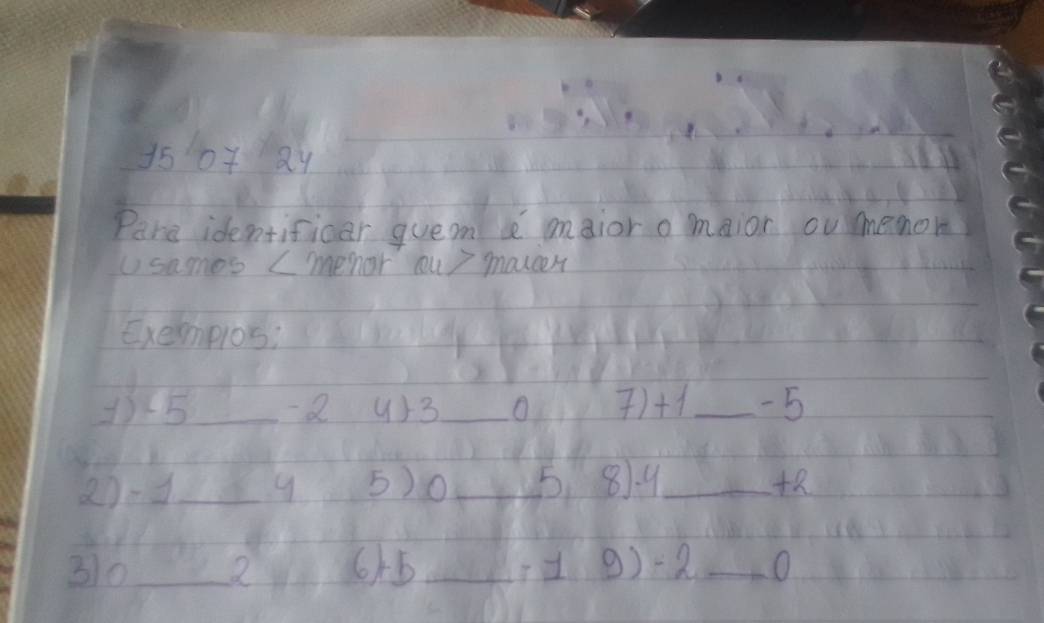 15 07 24
Para identificar quem é maior o maior ou menor
usamos < menor ou > maior
Exemplos:
1) -5 ____ -2 4) +3 ____ 0 7) +1 ____ -5
2) -1 ____ 4 5) 0 ____ 5 8) -4 ____ +2
3) 0 ____ 2 6) +5 ____ -1 9) -2 ____ 0